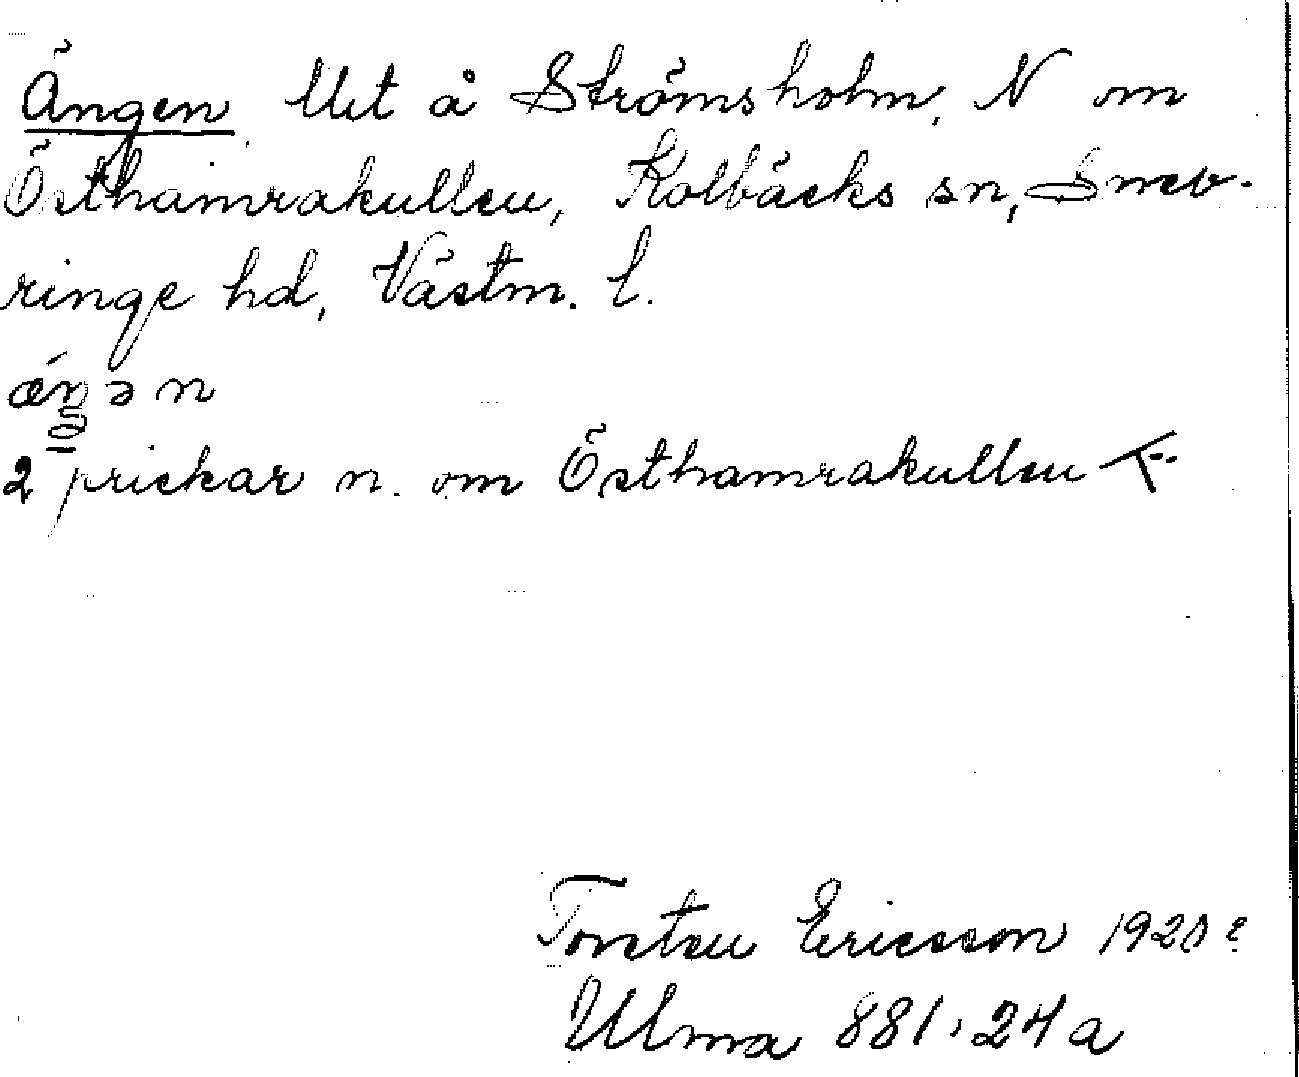 Ängen Ut å Strömsholm, N om
Östhamrakullen, Kolbäcks sn, Snev-
ringe hd, Västm. l.
ǽŋən
2 prickar n. om Östhamrakullen
Torsten Ericsson 1920?
Ulma 881:24a